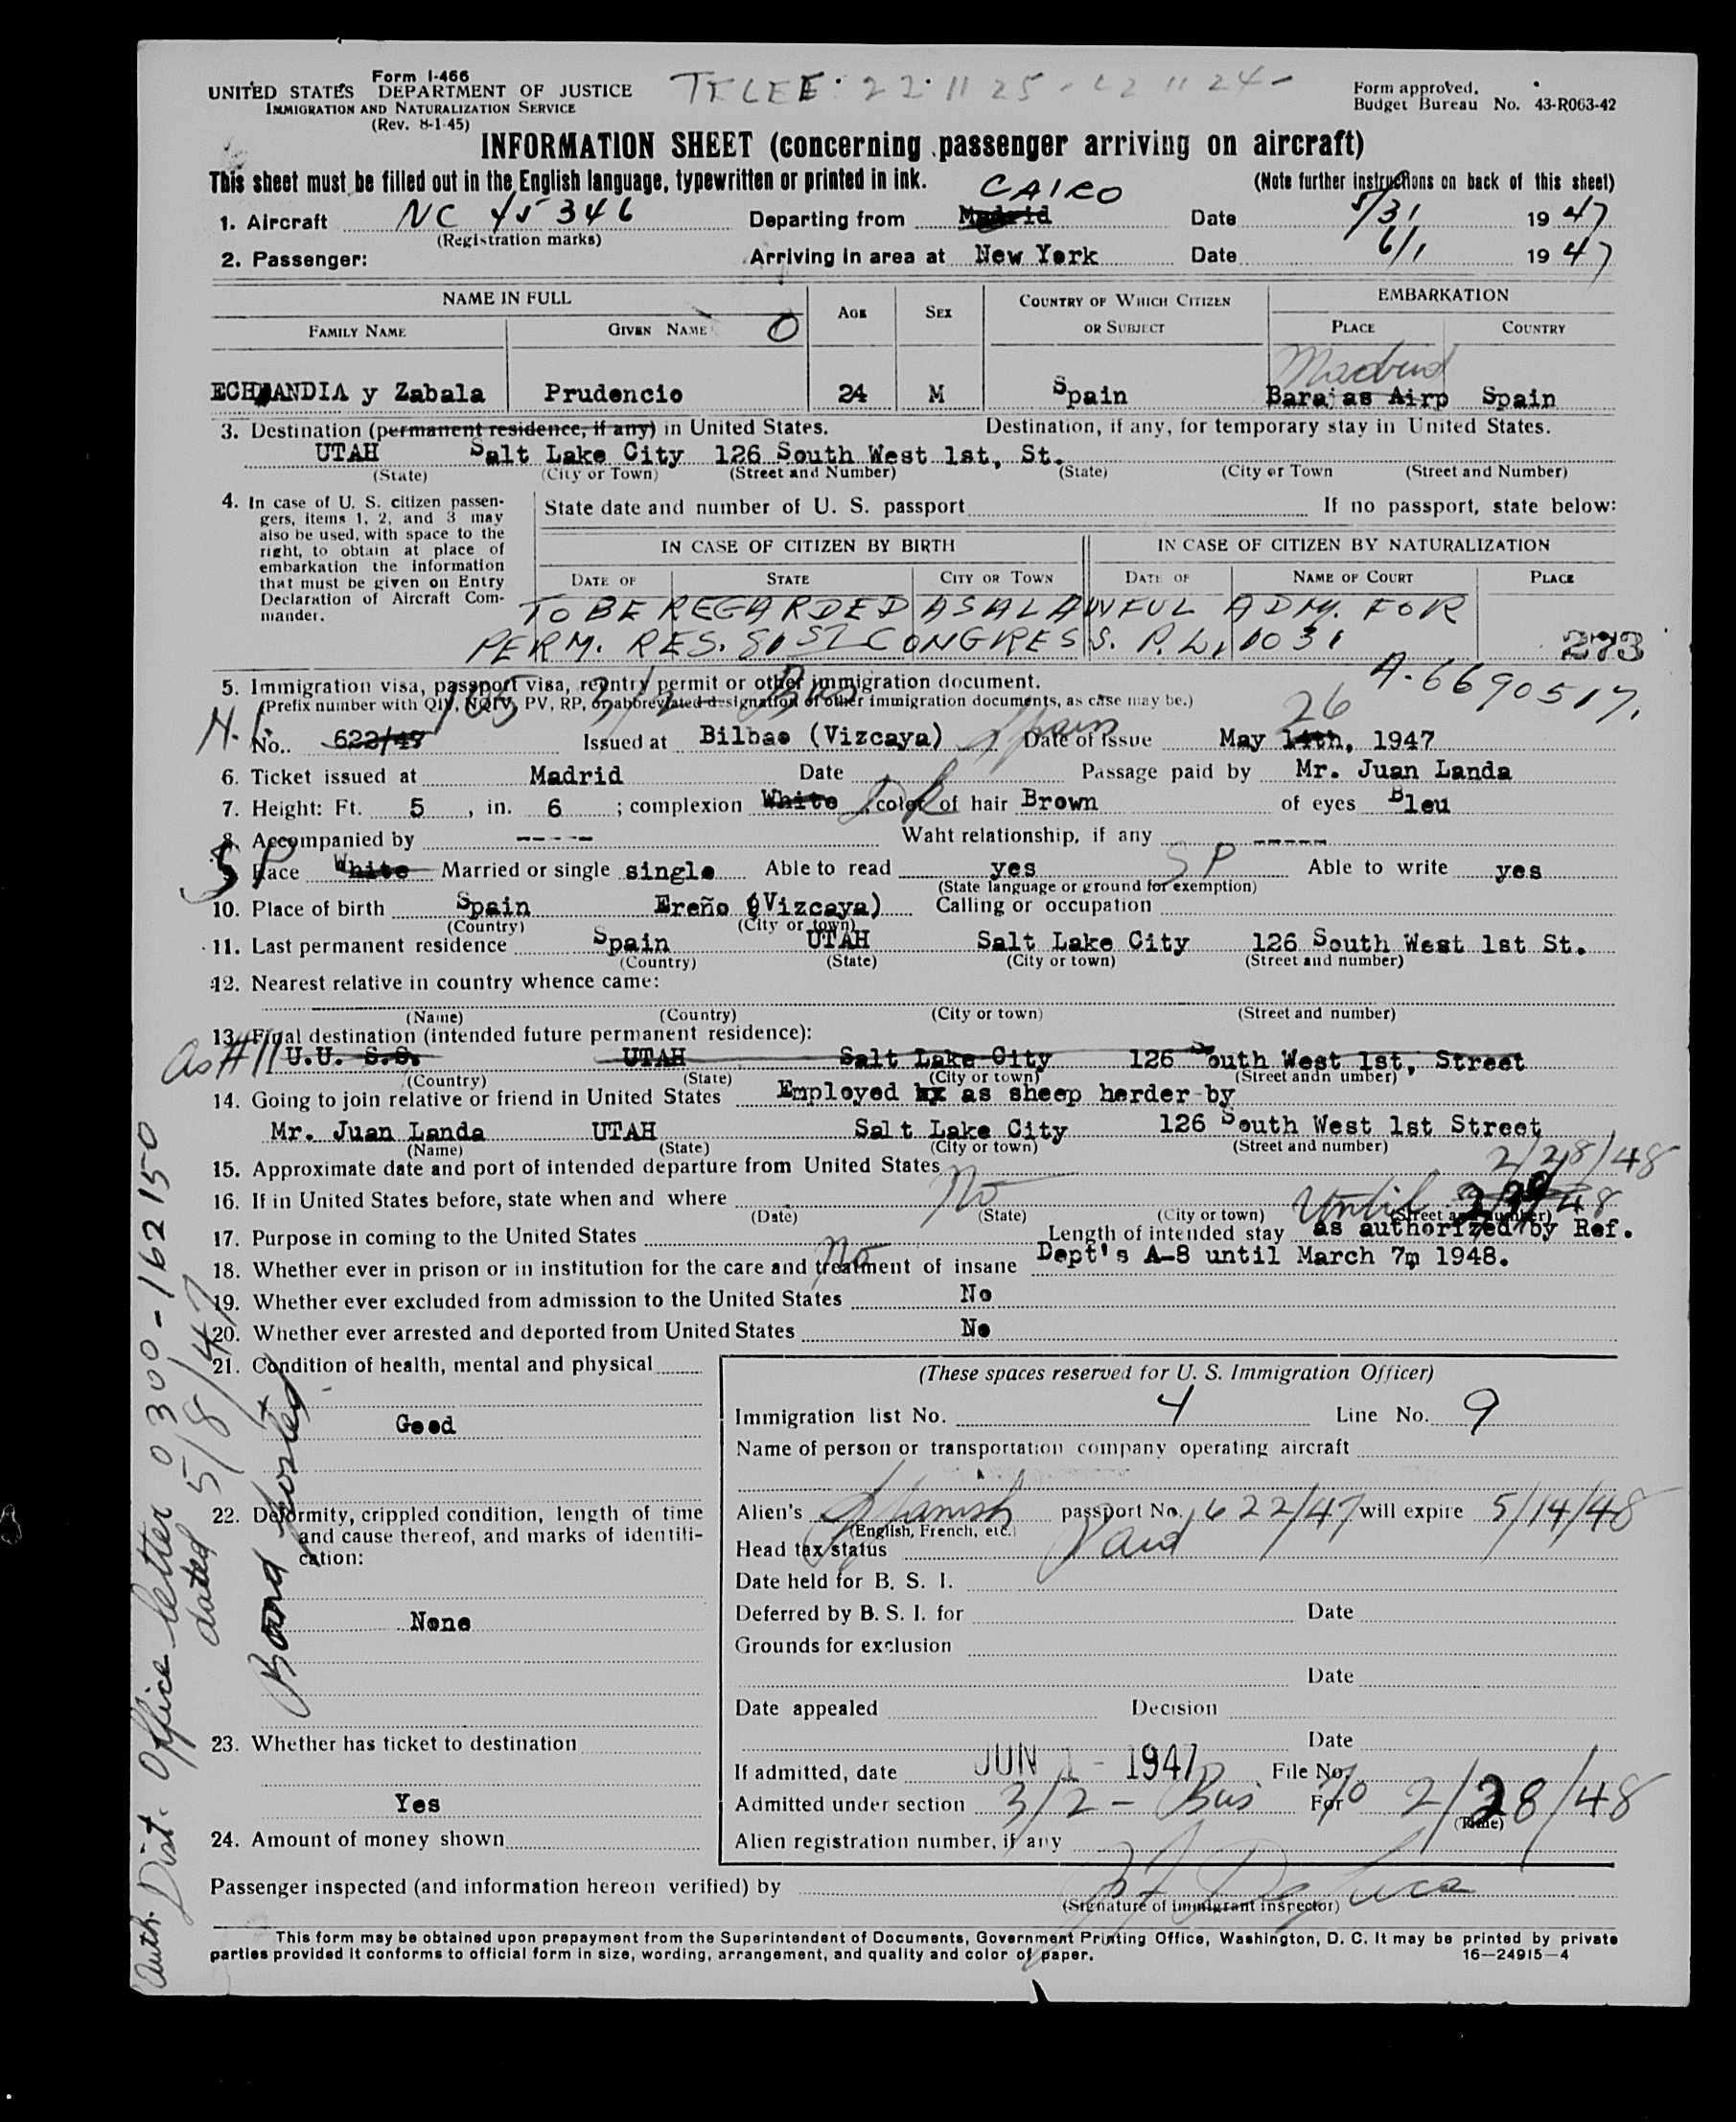 Form I-466
UNITED STATES DEPARTMENT OF JUSTICE
IMMIGRATION AND NATURALIZATION SERVICE
(Rev. 8-1-45)
TELEE: 22·11 25 - 22 11 24 -
Form approved.
Budget Bureau No. 43-R063-42
INFORMATION SHEET (concerning passenger arriving on aircraft)
This sheet must be filled out in the English language, typewritten or printed in ink. (Note further instructions on back of this sheet)
CAIRO
1. Aircraft NC 45346 Departing from Madrid Date 5/31 1947
(Registration marks)
2. Passenger: Arriving in area at New York Date 6/1 1947
NAME IN FULL AGE SEX COUNTRY OF WHICH CITIZEN OR SUBJECT EMBARKATION
FAMILY NAME GIVEN NAME O PLACE COUNTRY
Madrid
ECHANDIA y Zabala Prudencio 24 M Spain Barajas Airp Spain
3. Destination (permanent residence, if any) in United States. Destination, if any, for temporary stay in United States.
UTAH Salt Lake City 126 South West 1st, St.
(State) (City or Town) (Street and Number) (State) (City or Town (Street and Number)
4. In case of U. S. citizen passengers, items 1, 2, and 3 may also be used, with space to the right, to obtain at place of embarkation the information that must be given on Entry Declaration of Aircraft Commander.
State date and number of U. S. passport If no passport, state below:
IN CASE OF CITIZEN BY BIRTH IN CASE OF CITIZEN BY NATURALIZATION
DATE OF STATE CITY OR TOWN DATE OF NAME OF COURT PLACE
TO BE REGARDED AS A LAWFUL ADM. FOR
PERM. RES. 81ST CONGRESS. P.L. 1031
273
A-6690517.
5. Immigration visa, passport visa, reentry permit or other immigration document.
(Prefix number with QIV, NQIV, PV, RP, or abbreviated designation of other immigration documents, as case may be.)
N.I. 165 3/2 Bus
Spain 26
No. 622/47 Issued at Bilbao (Vizcaya) Date of Issue May 14th, 1947
6. Ticket issued at Madrid Date Passage paid by Mr. Juan Landa
7. Height: Ft. 5, in. 6; complexion White DK color of hair Brown of eyes Bleu
8. Accompanied by ----- Waht relationship, if any -----
SP
9. Race White Married or single single Able to read yes SP Able to write yes
(State language or ground for exemption)
10. Place of birth Spain Ereño (Vizcaya) Calling or occupation
(Country) (City or town)
11. Last permanent residence Spain UTAH Salt Lake City 126 South West 1st St.
(Country) (State) (City or town) (Street and number)
12. Nearest relative in country whence came:
(Name) (Country) (City or town) (Street and number)
13. Final destination (intended future permanent residence):
as #11 U.U. S.S. UTAH Salt Lake City 126 South West 1st, Street
(Country) (State) (City or town) (Street andn umber)
14. Going to join relative or friend in United States Employed as sheep herder by
Mr. Juan Landa UTAH Salt Lake City 126 South West 1st Street
(Name) (State) (City or town) (Street and number)
15. Approximate date and port of intended departure from United States 2/28/48
16. If in United States before, state when and where No Until
(Date) (State) (City or town) (Street and number)
17. Purpose in coming to the United States Length of intended stay as authorized by Ref.
18. Whether ever in prison or in institution for the care and treatment of insane No Dept's A-8 until March 7, 1948.
19. Whether ever excluded from admission to the United States No
20. Whether ever arrested and deported from United States No
21. Condition of health, mental and physical
Good
22. Deformity, crippled condition, length of time and cause thereof, and marks of identification:
None
23. Whether has ticket to destination
Yes
24. Amount of money shown
(These spaces reserved for U. S. Immigration Officer)
Immigration list No. 4 Line No. 9
Name of person or transportation company operating aircraft
Alien's Spanish passport No. 622/47 will expire 5/14/48
(English, French, etc.)
Head tax status Paid
Date held for B. S. I.
Deferred by B. S. I. for Date
Grounds for exclusion
Date
Date appealed Decision
Date
If admitted, date JUN 1 - 1947 File No.
Admitted under section 3/2 - Bus For To 2/28/48
(Time)
Alien registration number, if any
Passenger inspected (and information hereon verified) by
(Signature of immigrant inspector)
This form may be obtained upon prepayment from the Superintendent of Documents, Government Printing Office, Washington, D. C. It may be printed by private
parties provided it conforms to official form in size, wording, arrangement, and quality and color of paper. 16—24915—4
Auth. Dist. Office letter 0300-162150
dated 5/8/47
Bond posted